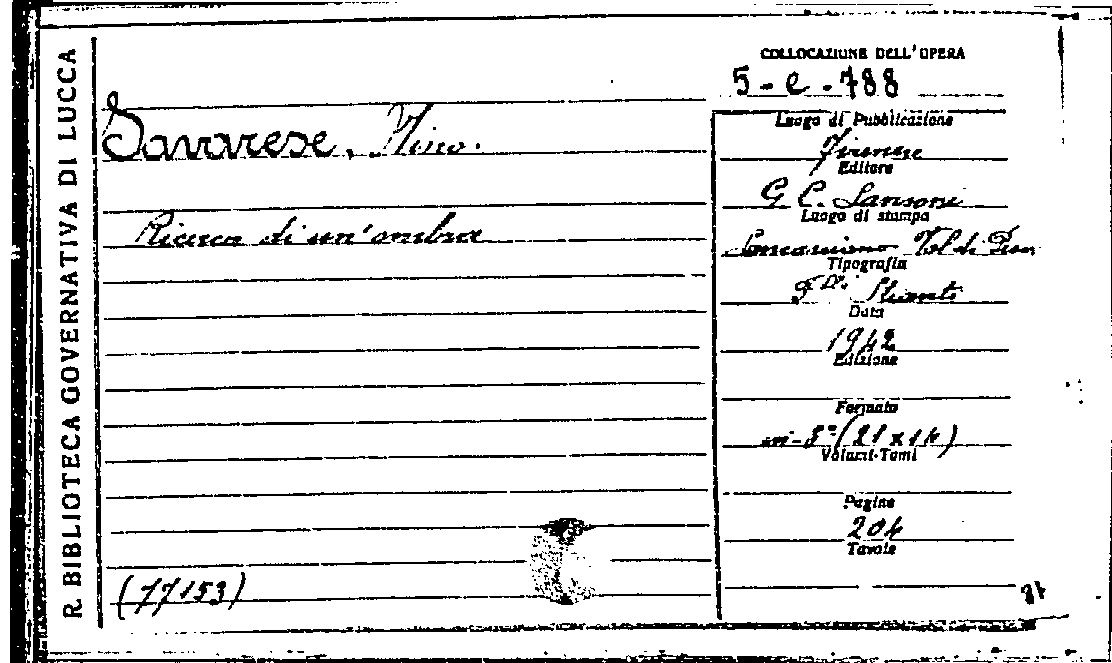 R. BIBLIOTECA GOVERNATIVA DI LUCCA
Savarese, Nino.
Ricerca di un'ombra
(77153)
COLLOCAZIONE DELL'OPERA
5-e-788
Luogo di Pubblicazione
Firenze
Editore
G. C. Sansoni
Luogo di stampa
Val di Pesa
Tipografia
F.lli Stianti
Data
1942
Edizione
Formato
in-8° (21 x 14)
Volumi-Tomi
Pagine
204
Tavole